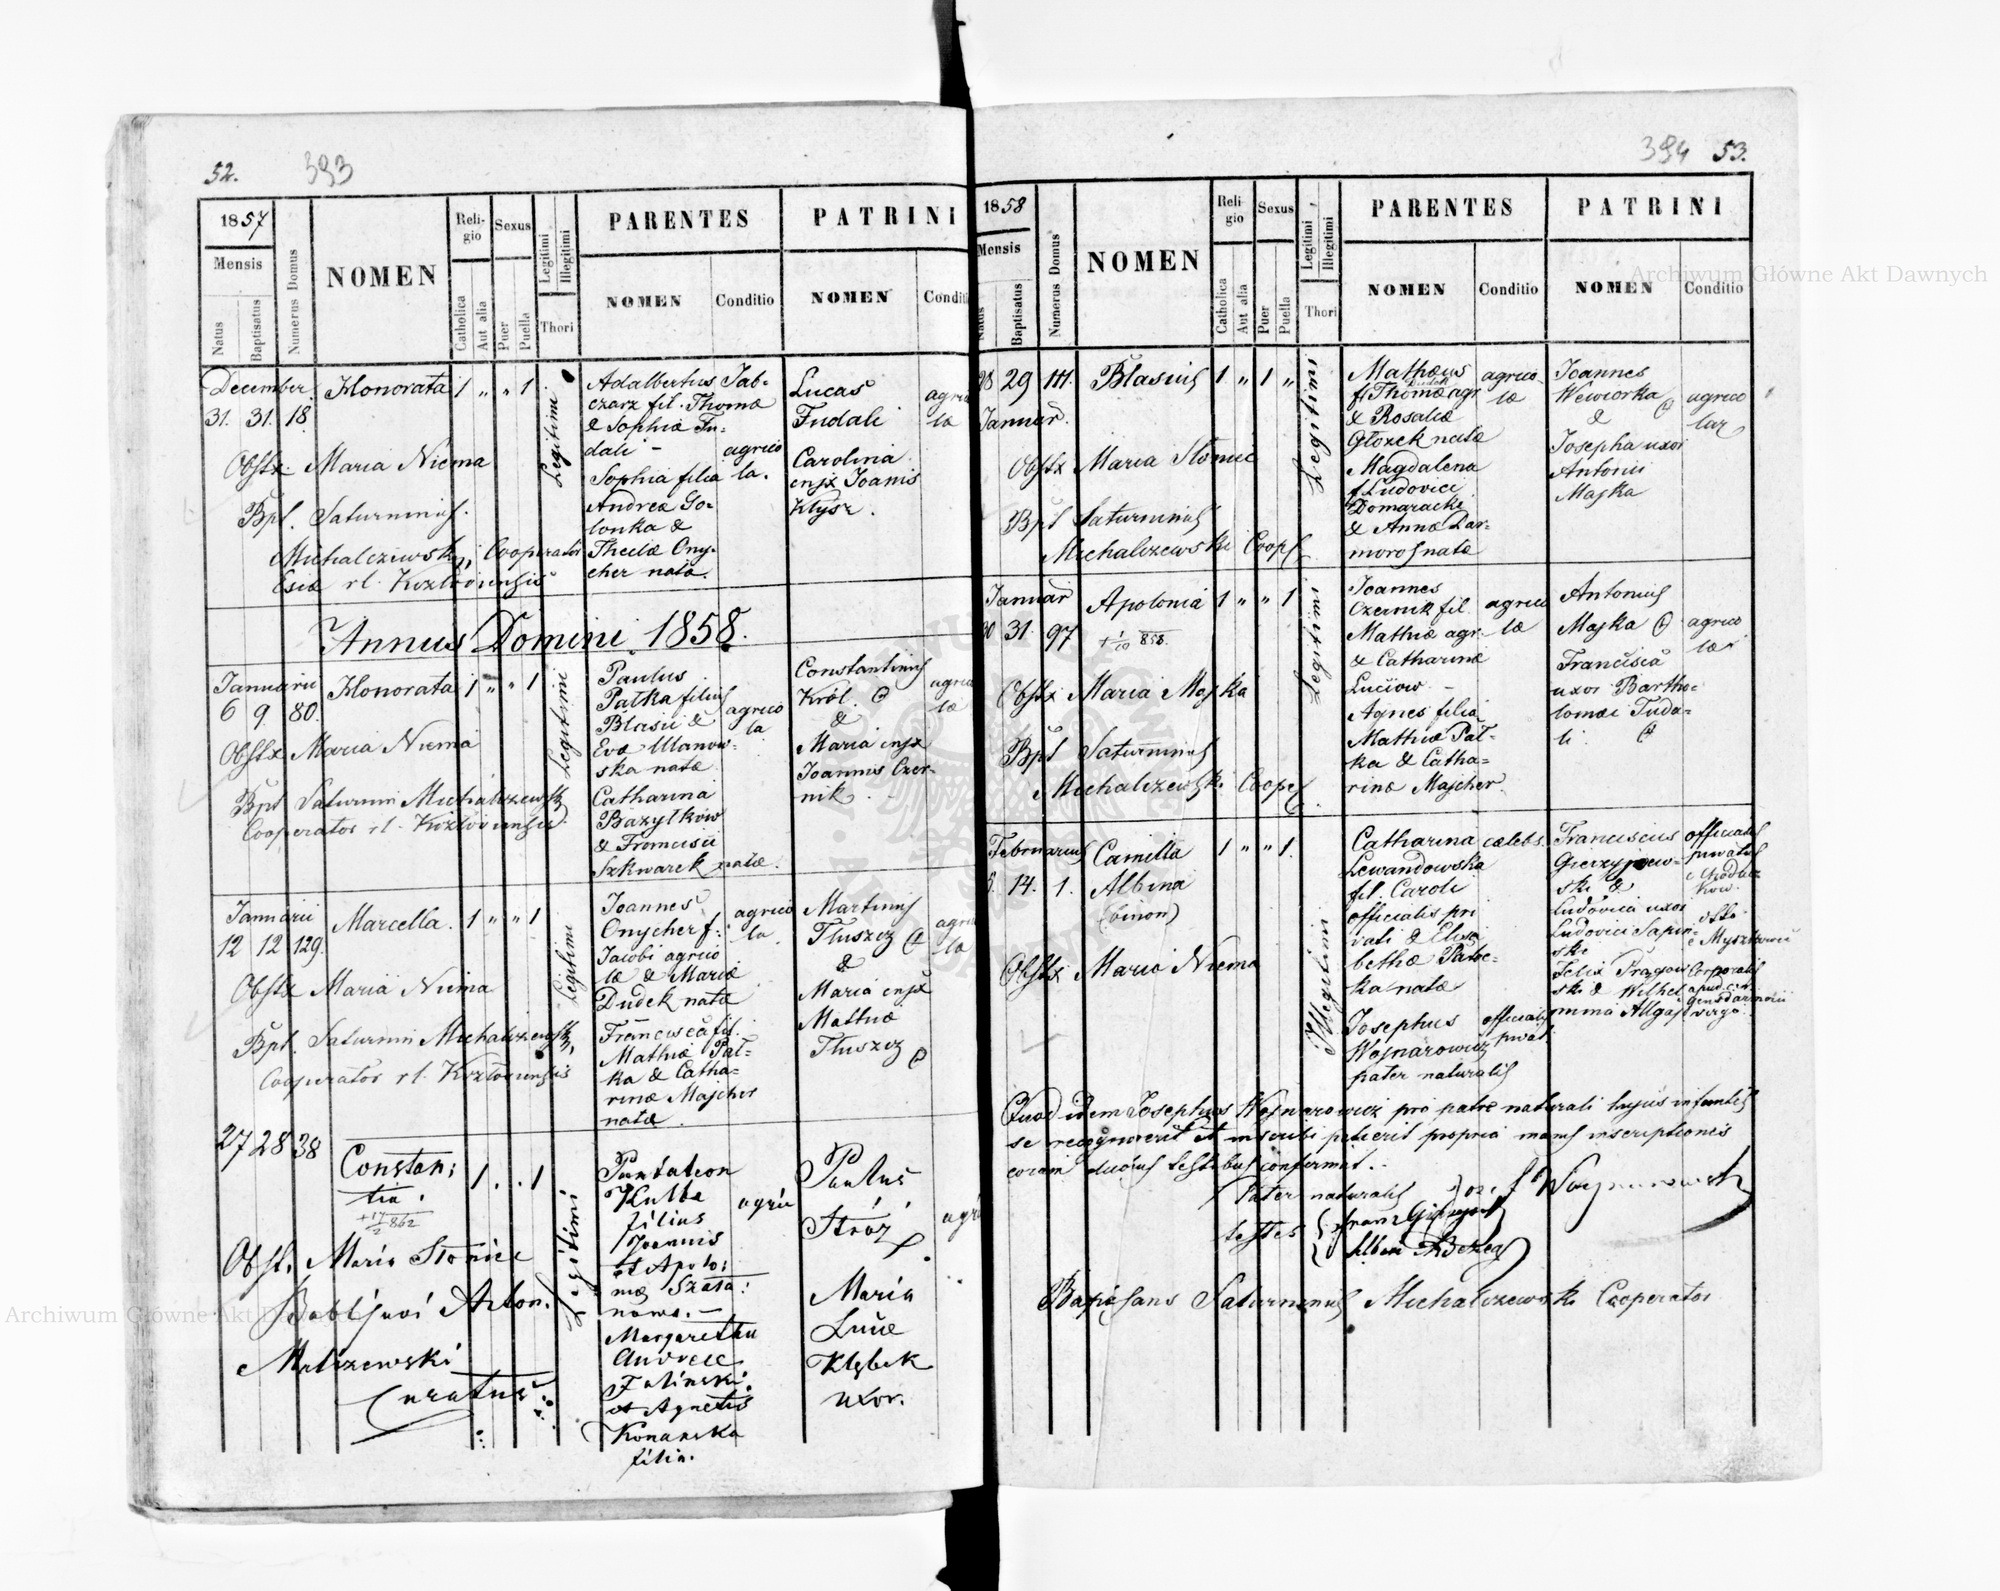 52. 393
1857
Mensis
Natus
Baptisatus
Numerus Domus
NOMEN
Religio
Catholica
Aut alia
Sexus
Puer
Puella
Legitimi
Illegitimi
Thori
PARENTES
NOMEN
Conditio
PATRINI
NOMEN
Conditi
December
31. 31. 18.
Honorata 1 " " 1
Legitimi
Obstx. Maria Niema
Bpt. Saturninus
Michalczewski, Cooperator
Ecciæ r.l. Kozłoviensis
Adalbertus Jab-
czarz fil. Thomæ
& Sophiæ Fu-
dali -
Sophia filia
Andreæ Go-
lonka &
Theclæ Ony-
cher natæ.
agrico
la.
Lucas
Fudali
Carolina
cnjx Joanis
Kłysz.
agrico
læ
Annus Domini 1858.
Januarii
6 9 80.
Honorata 1 " " 1
Legitimi
Obstx Maria Niema
Bpt Saturnin Michalczewski
Cooperator r.l. Kozłoviensis
Paulus
Pałka filius
Blasii &
Evæ Ulanow-
ska natæ
Catharina
Bazylków
& Francisii
Szkwarek natæ.
agrico
la
Constantinus
Król. &
Maria cnjx
Joannis Czer-
nik.
agrico
læ
Januarii
12 12 129.
Marcella. 1 " " 1
Legitimi
Obstx Maria Niema
Bpt. Saturnin Michalczewski,
Cooperator r.l. Kozłoviensis
Joannes
Onycher f.
Jacobi agrico
læ & Mariæ
Dudek natæ
Francisca fil.
Mathiæ Pał-
ka & Catha-
rinæ Majcher
natæ.
agrico
la
Martinus
Tłuszcz
&
Maria cnjx
Mathiæ
Tłuszcz
agrico
la
27 28 38
Constan:
tia.
1 . . 1
Legitimi
Obst. Maria Słonice
Babtizavi Anton.
Maliszewski
Curatus
Pantaleon
Kulba
filius
Joannis
et Apolo:
niæ Szała:
nowa. —
Margaretha
Andreæ
Falinski.
et Agnetis
Konarska
filia.
agric
Paulus
Stróż
Maria
Lucæ
Kłębek
uxor.
agri
394 53.
1858
Mensis
Natus
Baptisatus
Numerus Domus
NOMEN
Religio
Catholica
Aut alia
Sexus
Puer
Puella
Legitimi
Illegitimi
Thori
PARENTES
NOMEN
Conditio
PATRINI
NOMEN
Conditio
28 29 111.
Januar.
Blasius 1 " 1 "
Legitimi
Obstx Maria Słonice
Bpt Saturninus
Michalczewski Coops
Mathæus
Dudek
f. Thomæ agr
& Rosaliæ
Głozek natæ
Magdalena
f. Ludovici
Domaracki
& Annæ Dar-
moros natæ
agrico
læ
Joannes
Wewiorka
&
Josepha uxor
Antonii
Majka
agrico
lar
Januar
30 31. 97
Apolonia 1 " " 1
Legitimi
Obstx Maria Majka
Bpt Saturninus
Michalczewski Coops
Joannes
Czernik fil
Mathiæ agr-
& Catharinæ
Luciow -
Agnes filia
Mathiæ Pał-
ka & Catha-
rinæ Majcher.
agrico
læ
Antonius
Majka &
Francisca
uxor Bartho-
lomæi Fuda-
li.
agrico
læ
Februarius
5. 14. 1.
Camilla 1 " " 1.
Albina
(binom)
Illegitimi
Obstx Maria Niema
Catharina
Lewandowska
fil. Caroli
officialis pri
vati & Elisa
bethæ
ka natæ
Josephus
Wojnarowicz
pater naturalis
cælebs.
officialis
privat.
Franciscus
ski &
Ludovica uxor
Ludovici Sapin-
ski
Felix
ski & Wilhel
mina
officialis
privatus
Corporalis
apud c.r.
gensdarmerii
virgo
Quod idem Josephus Wojnarowicz pro patre naturali hujus infantis
se recognoverit et inscribi petierit propria manus inscriptionis
coram duobus testibus confirmat.
Pater naturalis Josef Woynarowicz
testes
Baptisans Saturninus Michalczewski Cooperator
Archiwum Główne Akt Dawnych
Archiwum Główne Akt Dawnych